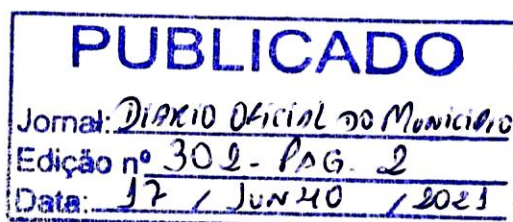 PUBLICADO
Jornal: DIARIO OFICIAL DO MUNICÍPIO
Edição nº 302 - PAG. 2
Data: 17 / JUNHO / 2021